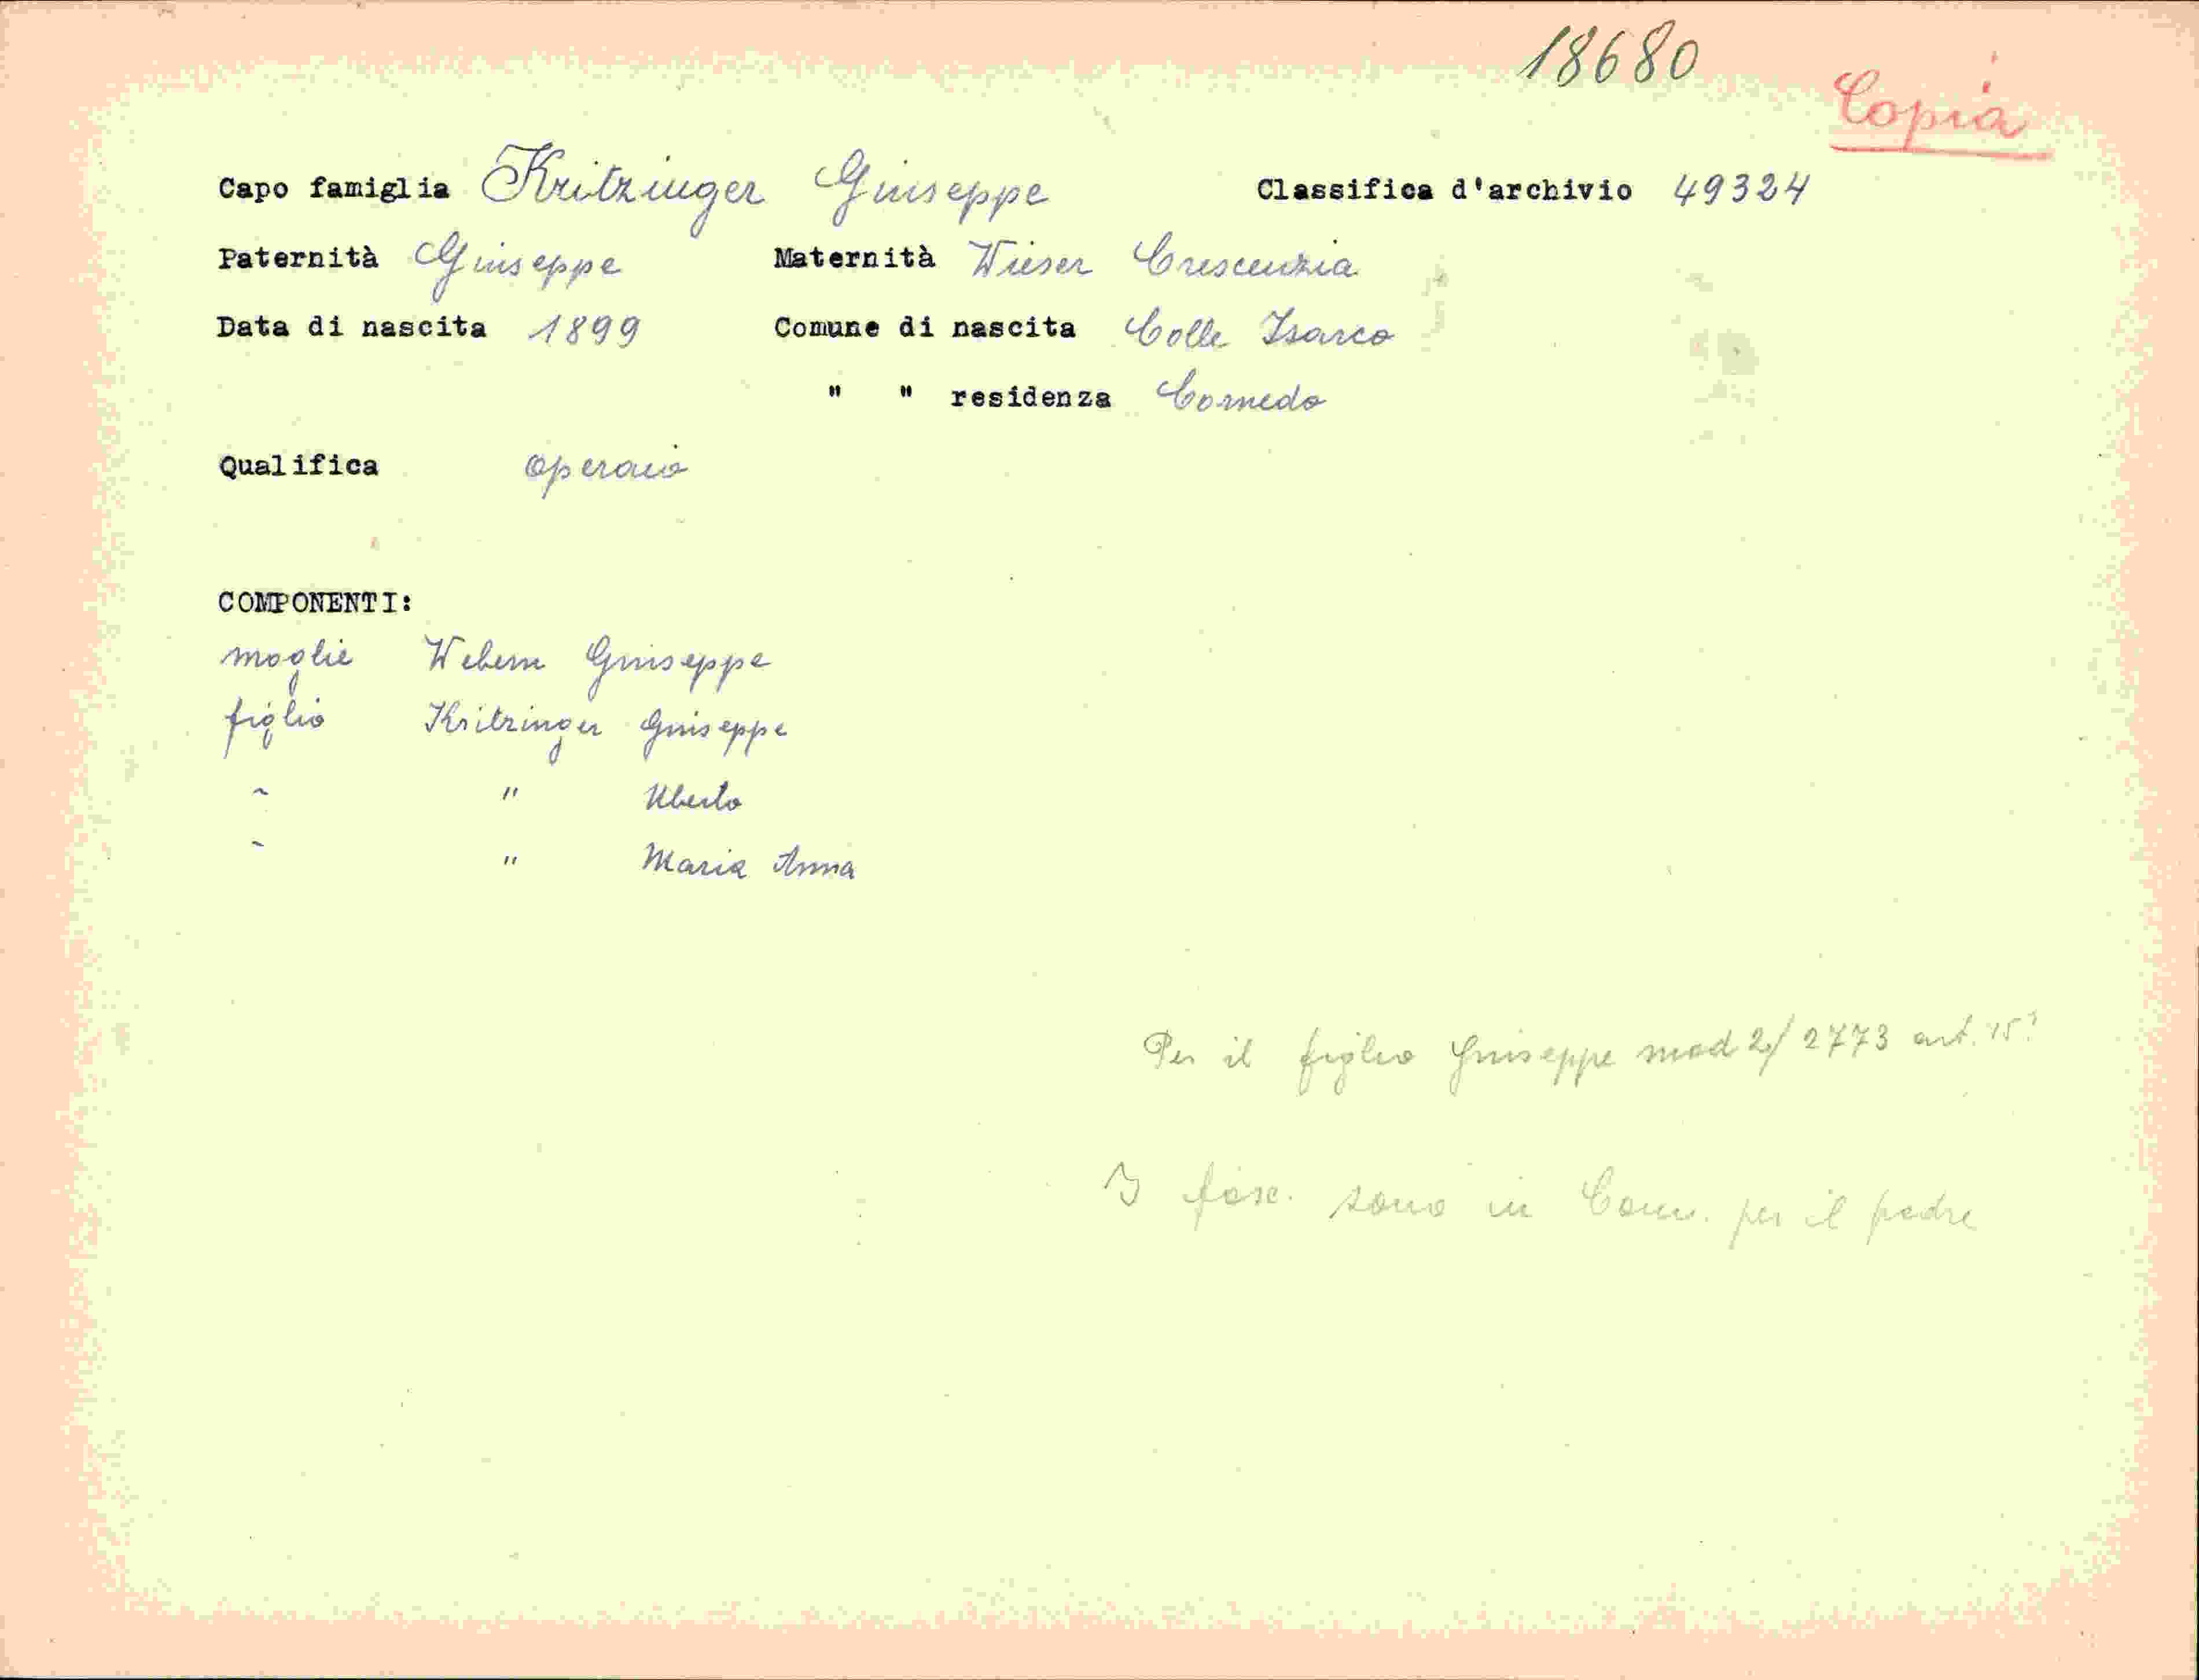 18680
Copia
Capo famiglia Kritzinger Giuseppe Classifica d'archivio 49324
Paternità Giuseppe Maternità Wieser Crescenzia
Data di nascita 1899 Comune di nascita Colle Isarco
" " residenza Cornedo
Qualifica operaio
COMPONENTI:
moglie Giuseppe
figlio Kritzinger Giuseppe
~ " Uberto
~ " Maria Anna
Per il figlio Giuseppe mod 2/ 2773 art. 15
I fasc. sono in Com. per il padre